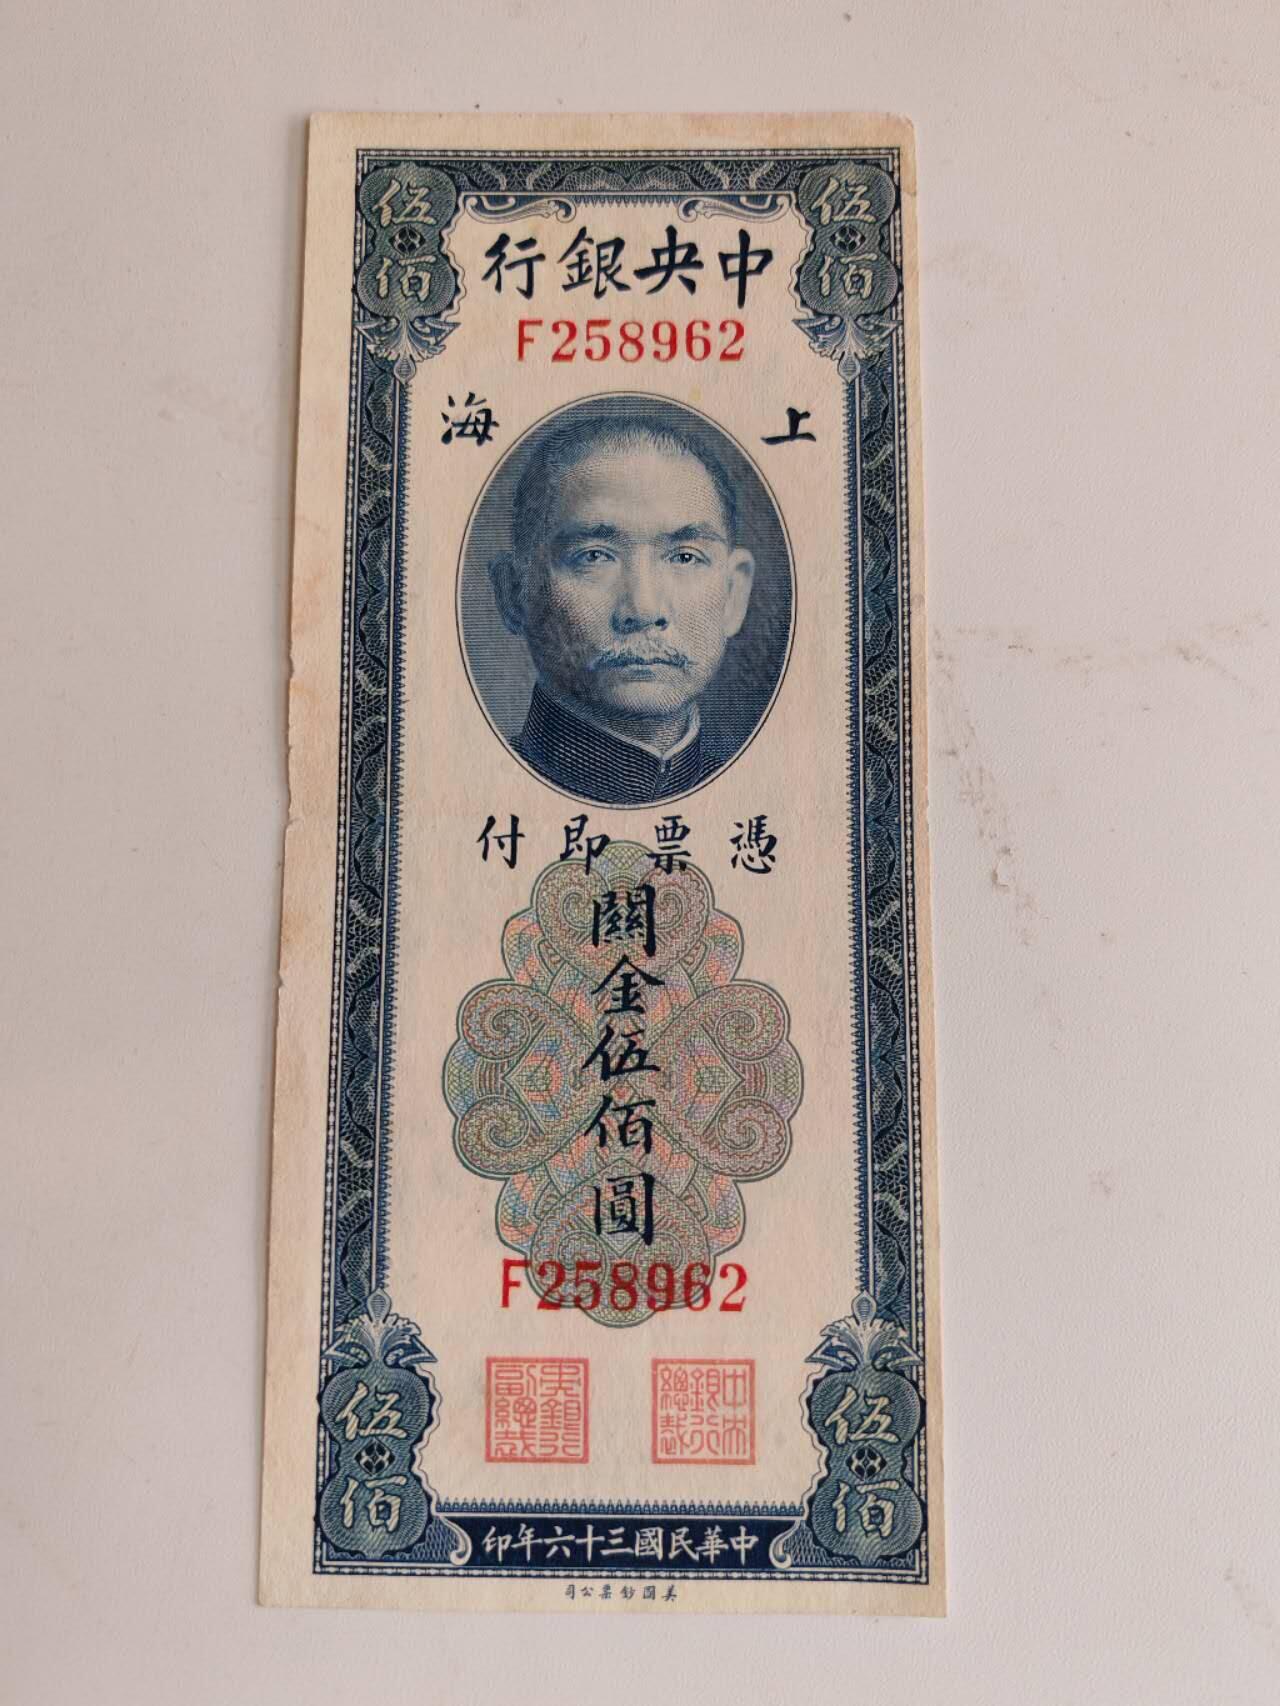 伍佰
伍佰
中央銀行
F258962
上海
憑票即付
關金伍佰圓
F258962
中央銀行總裁
央銀行副總裁
伍佰
伍佰
中華民國三十六年印
美國鈔票公司